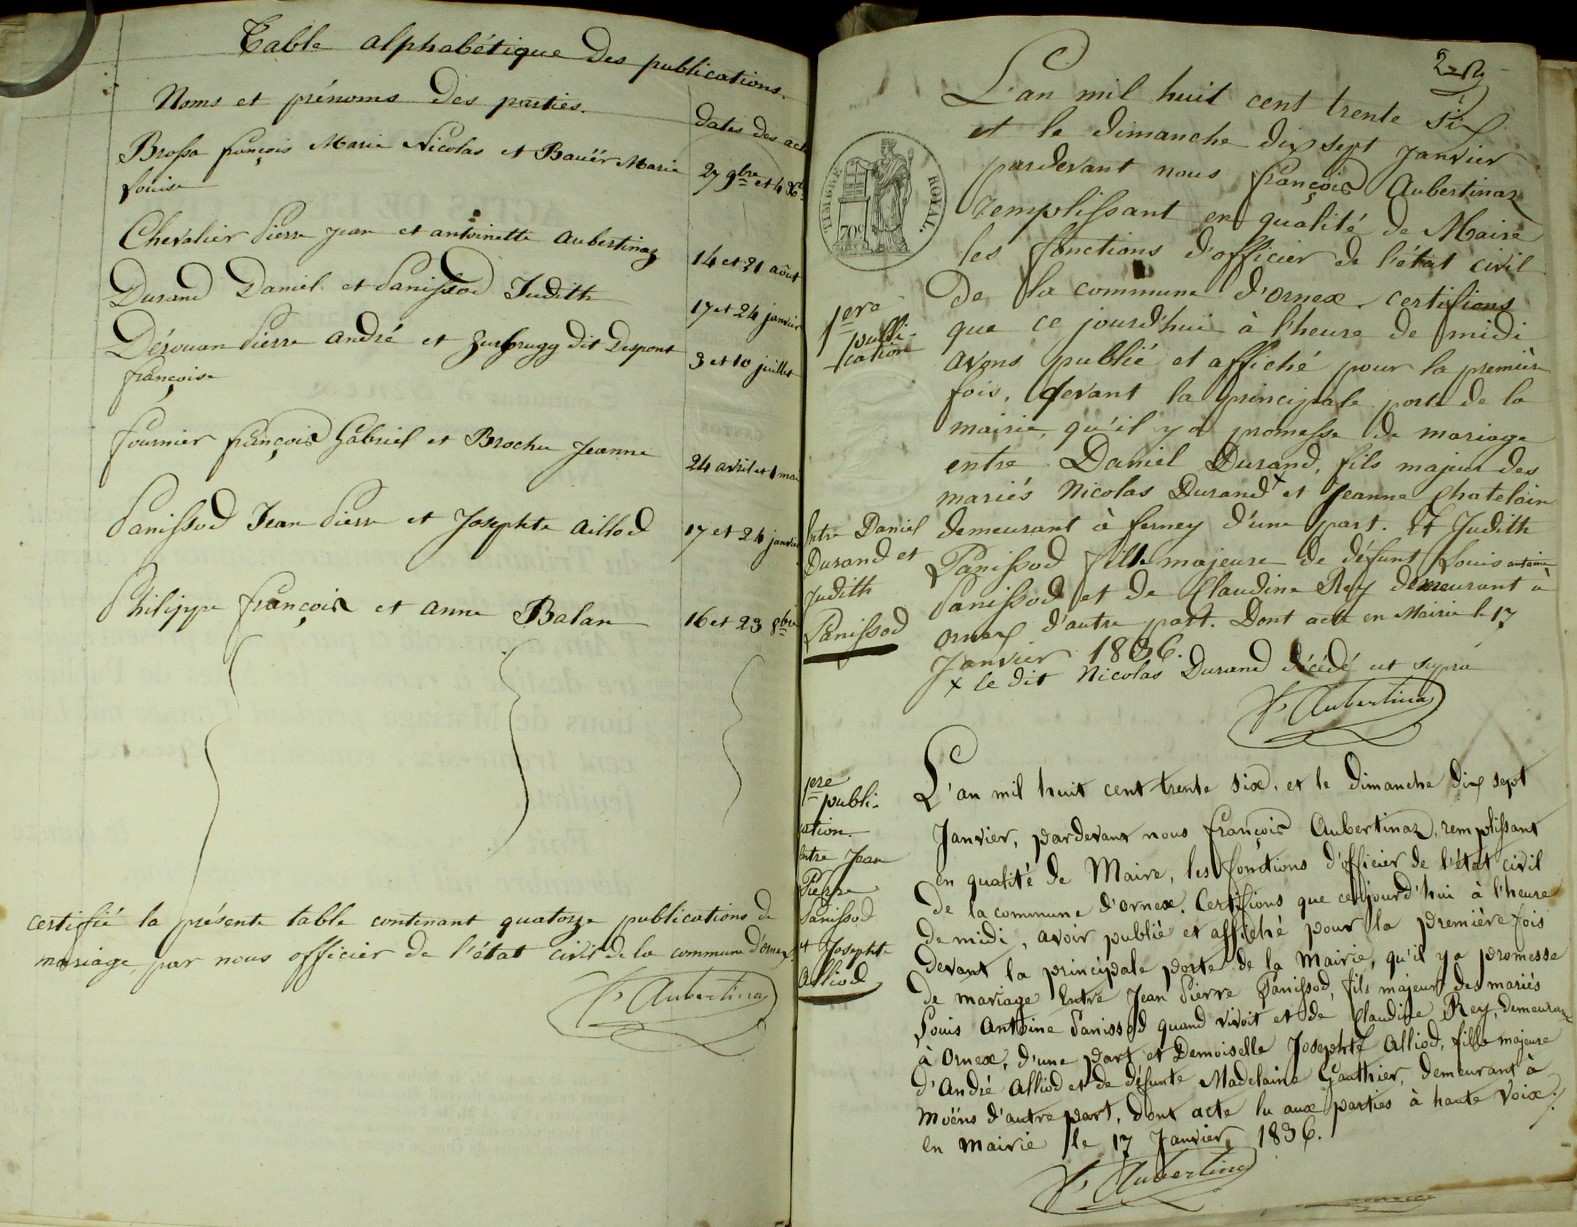 Table alphabétique des publications.
Noms et prénoms des parties.
dates des act
Brossa françois Marie Nicolas et Bauër Marie
Louise
27 9bre et 4 Xbre
Chevalier Pierre Jean et antoinette aubertinaz
14 et 21 août
Durand Daniel et Panissod Judith
17 et 24 janvier
Dérouan Pierre andré et Zurbrugg dit Despont
françoise
3 et 10 juillet
fournier françois Gabriel et Brochu Jeanne
24 avril et 1 mai
Panissod Jean Pierre et Josephte aillod
17 et 24 janvier
Philippe françois et anne Balan
16 et 23 8bre
certifié la présente table contenant quatorze publications de
mariage, par nous officier de l'état civil de la commune d'ornex.
f. Aubertinaz
TIMBRE ROYAL.
70c
L'an mil huit cent trente six
et le dimanche dix sept Janvier
pardevant nous françois Aubertinaz
remplissant en qualité de Maire
les fonctions d'officier de l'état civil
de la commune d'ornex. certifions
que ce jourd'hui à l'heure de midi
avons publié et affiché pour la première
fois, devant la principale porte de la
mairie, qu'il y a promesse de mariage
entre Daniel Durand, fils majeur des
mariés Nicolas Durand x et Jeanne Chatelain
demeurant à ferney d'une part. Et Judith
Panissod fille majeure de défunt Louis antoine
Panissod et de Claudine Rey demeurant à
ornex d'autre part. Dont acte en Mairie le 17
Janvier 1836.
x le dit Nicolas Durand décédé ut supra
f. Aubertinaz
1ere
publi-
cation
Entre Daniel
Durand et
Judith
Panissod
L'an mil huit cent trente six, et le dimanche dix sept
Janvier, pardevant nous françois Aubertinaz, remplissant
en qualité de Maire, les fonctions d'officier de l'état civil
de la commune d'ornex. Certifions que cejourd'hui à l'heure
de midi, avoir publié et affiché pour la première fois
devant la principale porte de la Mairie, qu'il y a promesse
de mariage Entre Jean Pierre Panissod, fils majeur des mariés
Louis Antoine Panissod quand vivoit et de Claudine Rey, demeurant
à Ornex, d'une part et Demoiselle Josephte Alliod, fille majeure
d'André Alliod et de défunte Madelaine Gauthier, demeurant à
Moëns d'autre part, dont acte lu aux parties à haute voix.
En Mairie le 17 Janvier 1836.
f. Aubertinaz
1ere
publi-
cation.
Entre Jean
Pierre
Panissod
et Josephte
Alliod